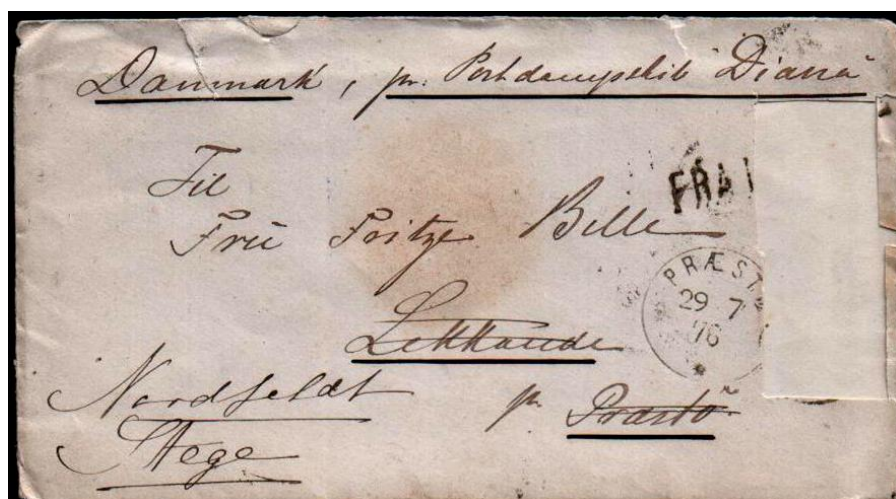 Danmark, pr. Postdampskib "Diana"
FRA
Til
Frü Fritze Bille
PRÆST
29 7
76
Lekkande
pr. Præstö
Nordfeldt
Stege